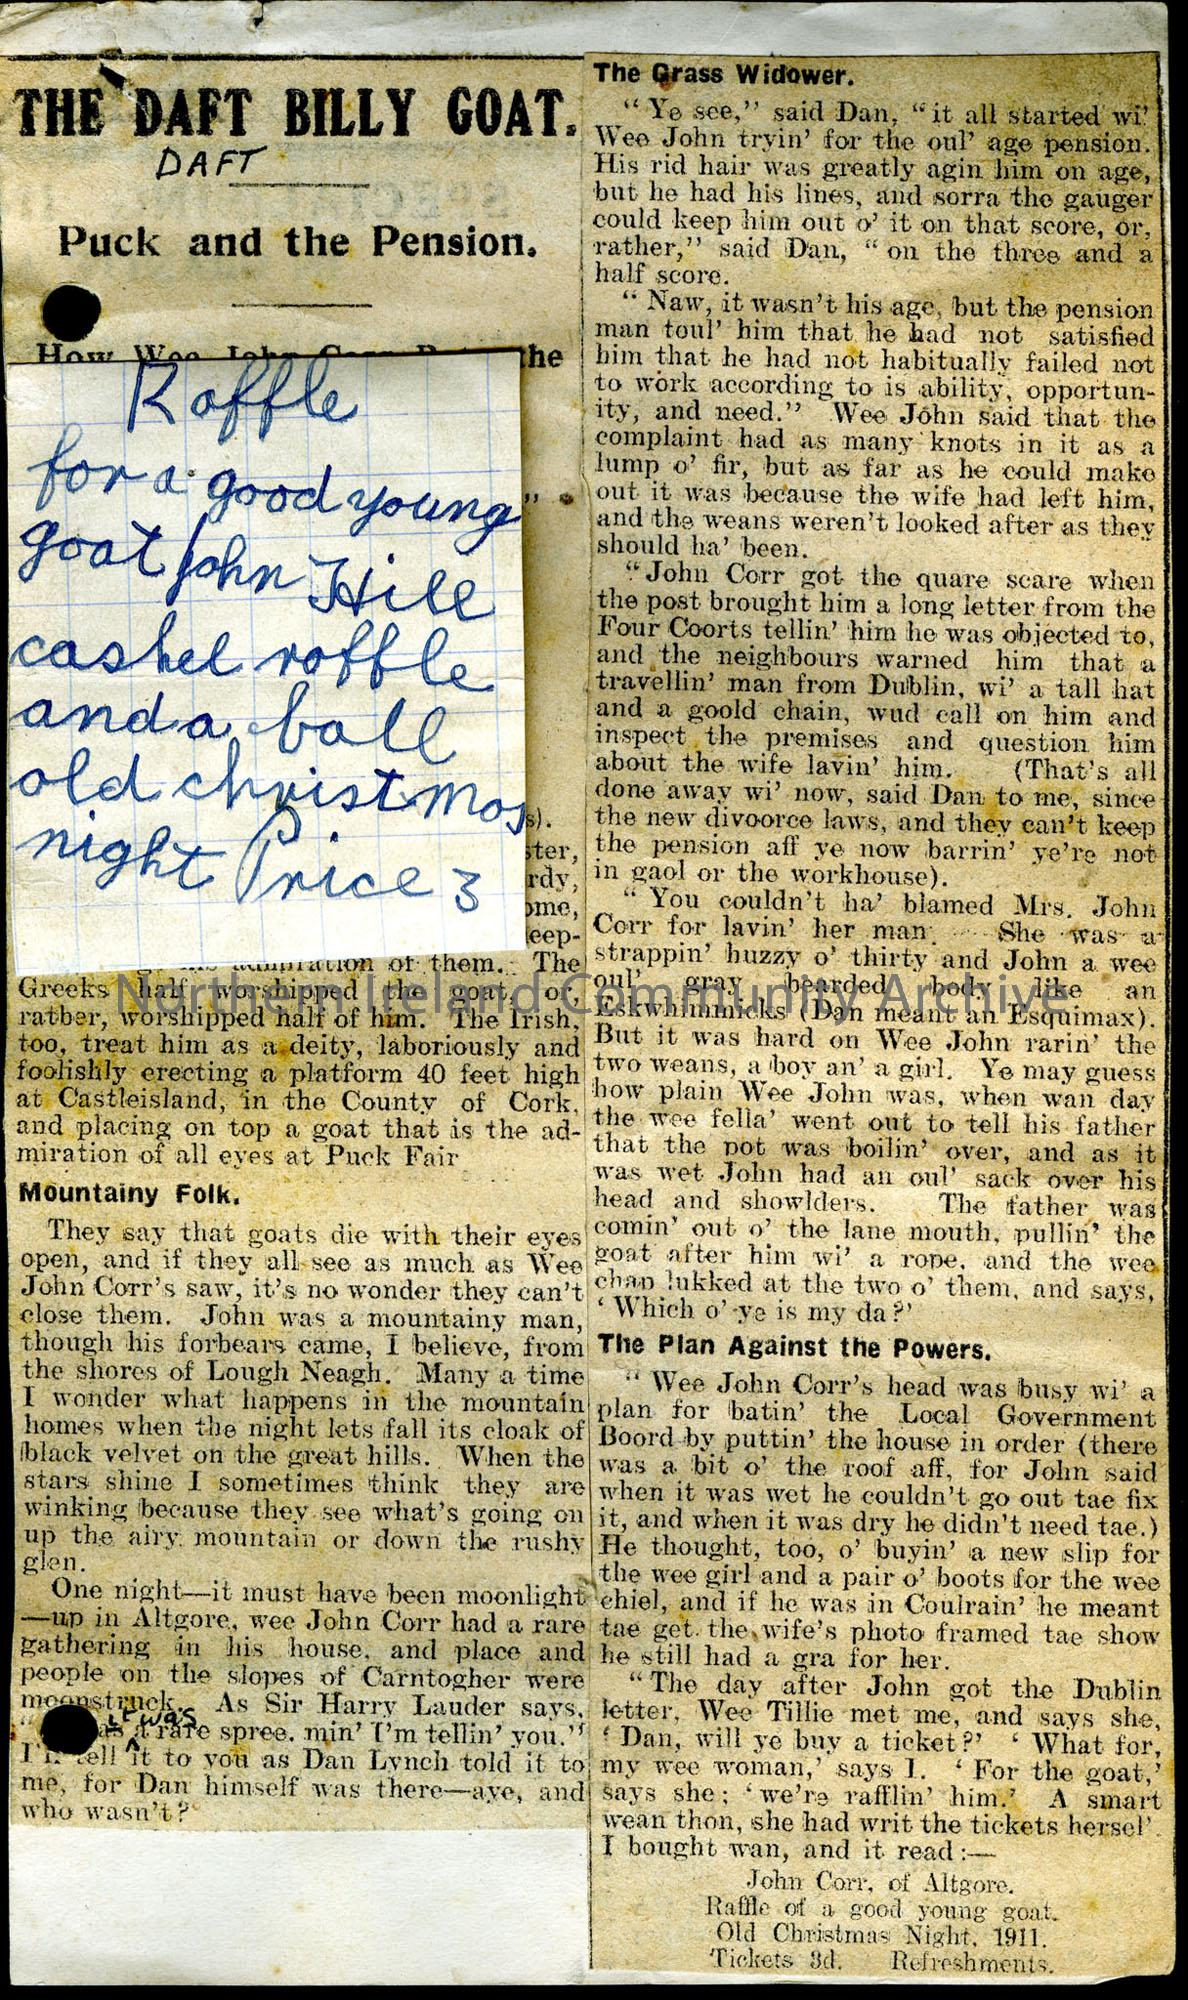 THE DAFT BILLY GOAT.
DAFT
Puck and the Pension.
How Wee John Corr the
Raffle
for a good young
goat John Hill
cashel raffle
and a ball
old christmas
night Price 3
"
s).
ster,
rdy,
ome,
eep-
admiration of them. The
Greeks half worshipped the goat, or,
rather, worshipped half of him. The Irish,
too, treat him as a deity, laboriously and
foolishly erecting a platform 40 feet high
at Castleisland, in the County of Cork,
and placing on top a goat that is the ad-
miration of all eyes at Puck Fair
Mountainy Folk.
They say that goats die with their eyes
open, and if they all see as much as Wee
John Corr's saw, it's no wonder they can't
close them. John was a mountainy man,
though his forbears came, I believe, from
the shores of Lough Neagh. Many a time
I wonder what happens in the mountain
homes when the night lets fall its cloak of
black velvet on the great hills. When the
stars shine I sometimes think they are
winking because they see what's going on
up the airy mountain or down the rushy
glen.
One night—it must have been moonlight
—up in Altgore, wee John Corr had a rare
gathering in his house, and place and
people on the slopes of Carntogher were
moonstruck. As Sir Harry Lauder says,
it was
"as a rare spree, min' I'm tellin' you."
I'll tell it to you as Dan Lynch told it to
me, for Dan himself was there—aye, and
who wasn't?
The Grass Widower.
"Ye see," said Dan, "it all started wi'
Wee John tryin' for the oul' age pension.
His rid hair was greatly agin him on age,
but he had his lines, and sorra the gauger
could keep him out o' it on that score, or,
rather," said Dan, "on the three and a
half score.
"Naw, it wasn't his age, but the pension
man toul' him that he had not satisfied
him that he had not habitually failed not
to work according to is ability, opportun-
ity, and need." Wee John said that the
complaint had as many knots in it as a
lump o' fir, but as far as he could make
out it was because the wife had left him,
and the weans weren't looked after as they
should ha' been.
"John Corr got the quare scare when
the post brought him a long letter from the
Four Coorts tellin' him he was objected to,
and the neighbours warned him that a
travellin' man from Dublin, wi' a tall hat
and a goold chain, wud call on him and
inspect the premises and question him
about the wife lavin' him. (That's all
done away wi' now, said Dan to me, since
the new divoorce laws, and they can't keep
the pension aff ye now barrin' ye're not
in gaol or the workhouse).
"You couldn't ha' blamed Mrs. John
Corr for lavin' her man. She was a
strappin' huzzy o' thirty and John a wee
oul' gray bearded body like an
Eskwhimmicks (Dan meant an Esquimax).
But it was hard on Wee John rarin' the
two weans, a boy an' a girl. Ye may guess
how plain Wee John was, when wan day
the wee fella' went out to tell his father
that the pot was boilin' over, and as it
was wet John had an oul' sack over his
head and showlders. The father was
comin' out o' the lane mouth, pullin' the
goat after him wi' a rope, and the wee
chap lukked at the two o' them, and says,
'Which o' ye is my da?'
The Plan Against the Powers.
"Wee John Corr's head was busy wi' a
plan for batin' the Local Government
Boord by puttin' the house in order (there
was a bit o' the roof aff, for John said
when it was wet he couldn't go out tae fix
it, and when it was dry he didn't need tae.)
He thought, too, o' buyin' a new slip for
the wee girl and a pair o' boots for the wee
chiel, and if he was in Coulrain' he meant
tae get the wife's photo framed tae show
he still had a gra for her.
"The day after John got the Dublin
letter, Wee Tillie met me, and says she,
'Dan, will ye buy a ticket?' 'What for,
my wee woman,' says I. 'For the goat,'
says she; 'we're rafflin' him.' A smart
wean thon, she had writ the tickets hersel'.
I bought wan, and it read:—
John Corr, of Altgore.
Raffle of a good young goat.
Old Christmas Night, 1911.
Tickets 3d. Refreshments.
Northern Ireland Community Archive